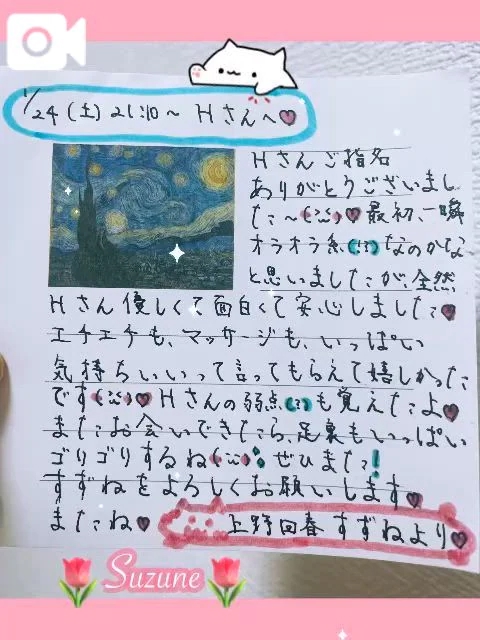 1/24(土)21:10~ Hさんへ♥
Hさんご指名
ありがとうございまし
た~(¨̮)♥最初、一瞬
オラオラ系(!?)なのかな
と思いましたが、全然
Hさん優しくて面白くて安心しました♥
エチエチも、マッサージも、いっぱい
気持ちいいって言ってもらえて嬉しかった
です(¨̮)♥Hさんの弱点(!?)も覚えたよ♥
またお会いできたら、足裏もいっぱい
ゴリゴリするね(¨̮)ぜひまた!
すずねをよろしくお願いします♥
またね♥ 上野回春 すずねより♥
Suzune